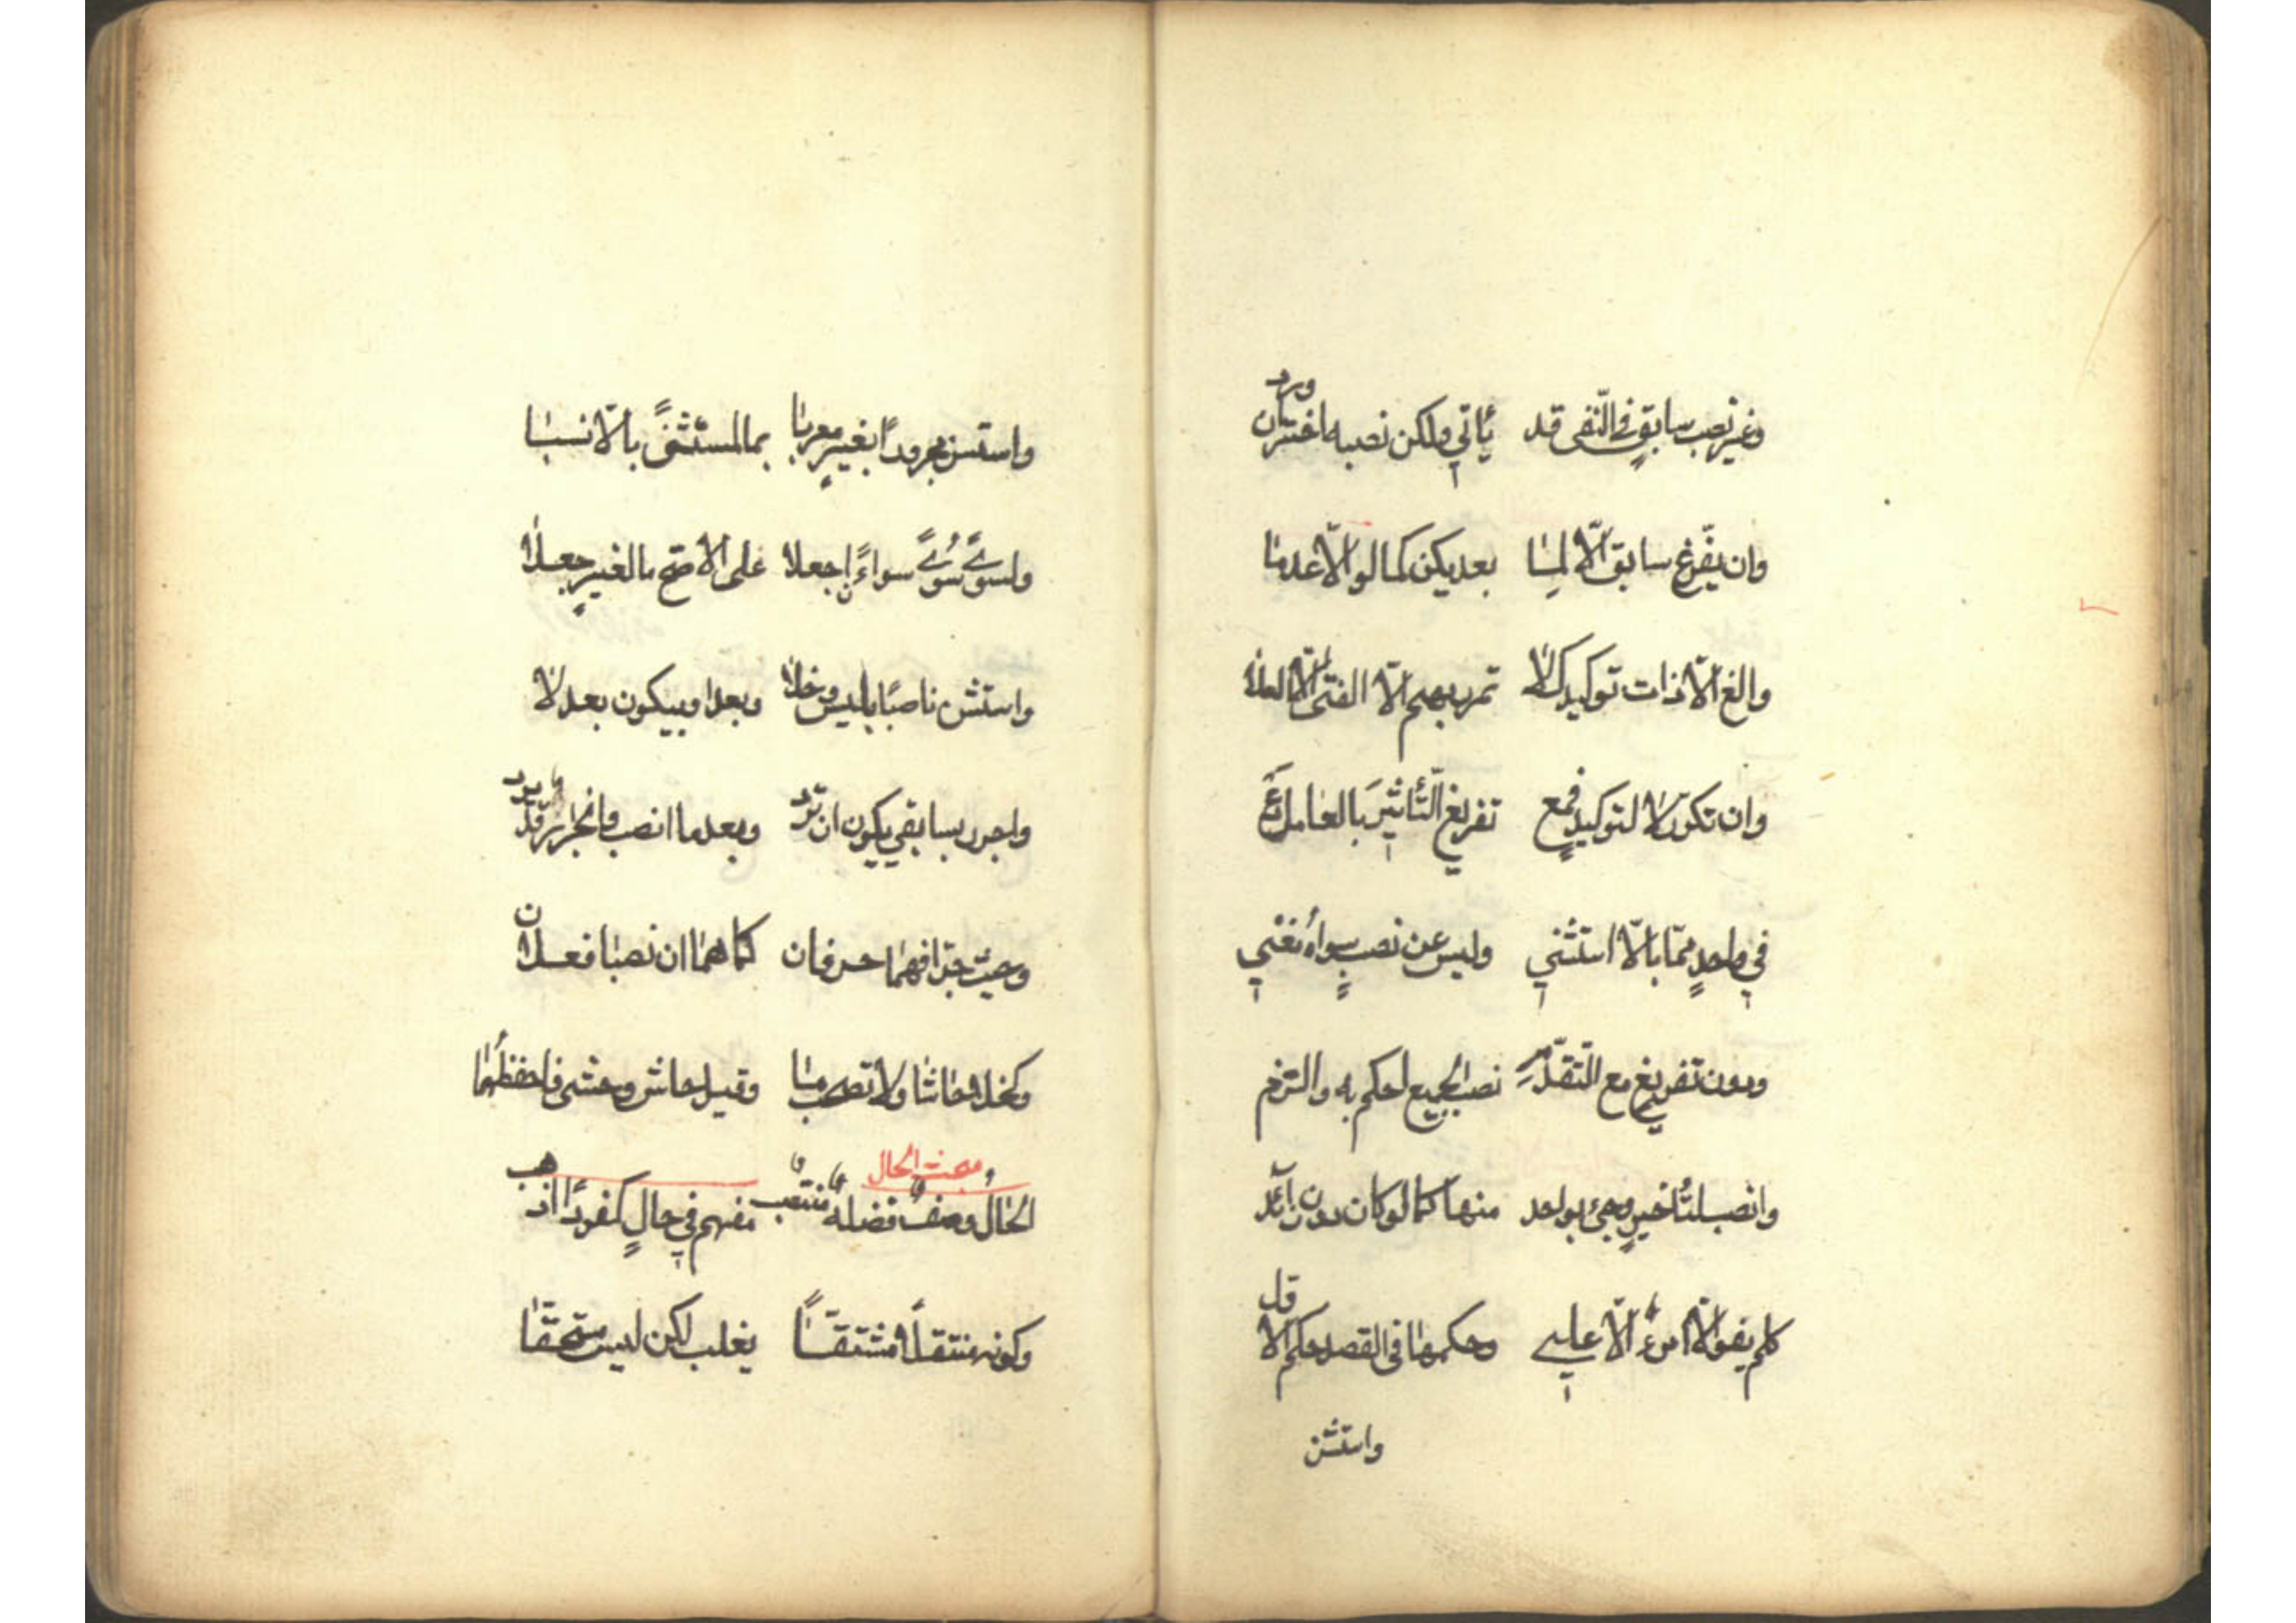 وغير نصب سابق في النّفى قد يأتي ولكن نصبه اختر ان ورد
وان يفّرغ سابق الّا لما بعد يكن كما لو الّا عدما
والغ الّا ذات توكيد كلا تمرر بهم الّا الفتى الّا العلا
وان تكرر لا لتوكيد فمع تفريغ التّأثير بالعامل دع
في واحد ممّا بالّا استثني وليس عن نصب سواه مغني
ودون تفريغ مع التّقدّم نصب الجميع احكم به والتزم
وانصب لتأخير وجئ بواحد منها كما لو كان دون زائد
كلم يفوا الّا امرء الّا علي وحكمها فى القصد حكم الاوّل
واستثن
واستثن مجرورًا بغير معربا بما لمستثنىً بالّا نسبا
ولسوىً سُوىً سواءً اجعلا على الاصّح ما لغير جعلا
واستثن ناصبًا بليس وخلا وبعدا وبيكون بعد لا
واجرر بسابقي يكون ان ترد وبعد ما انصب وانجرار قد يرد
وحيث جرّا فهما حرفان كما هما ان نصبا فعلان
وكخلا حاشا ولا تصحب ما وقيل حاش وحشى فاحفظهما
مبحث الحال
الحال وصف فضلة منتصب مفهم في حالٍ كفردًا اذهب
وكونه منتقلًا مشتقّا يغلب لكن ليس مستحقّا